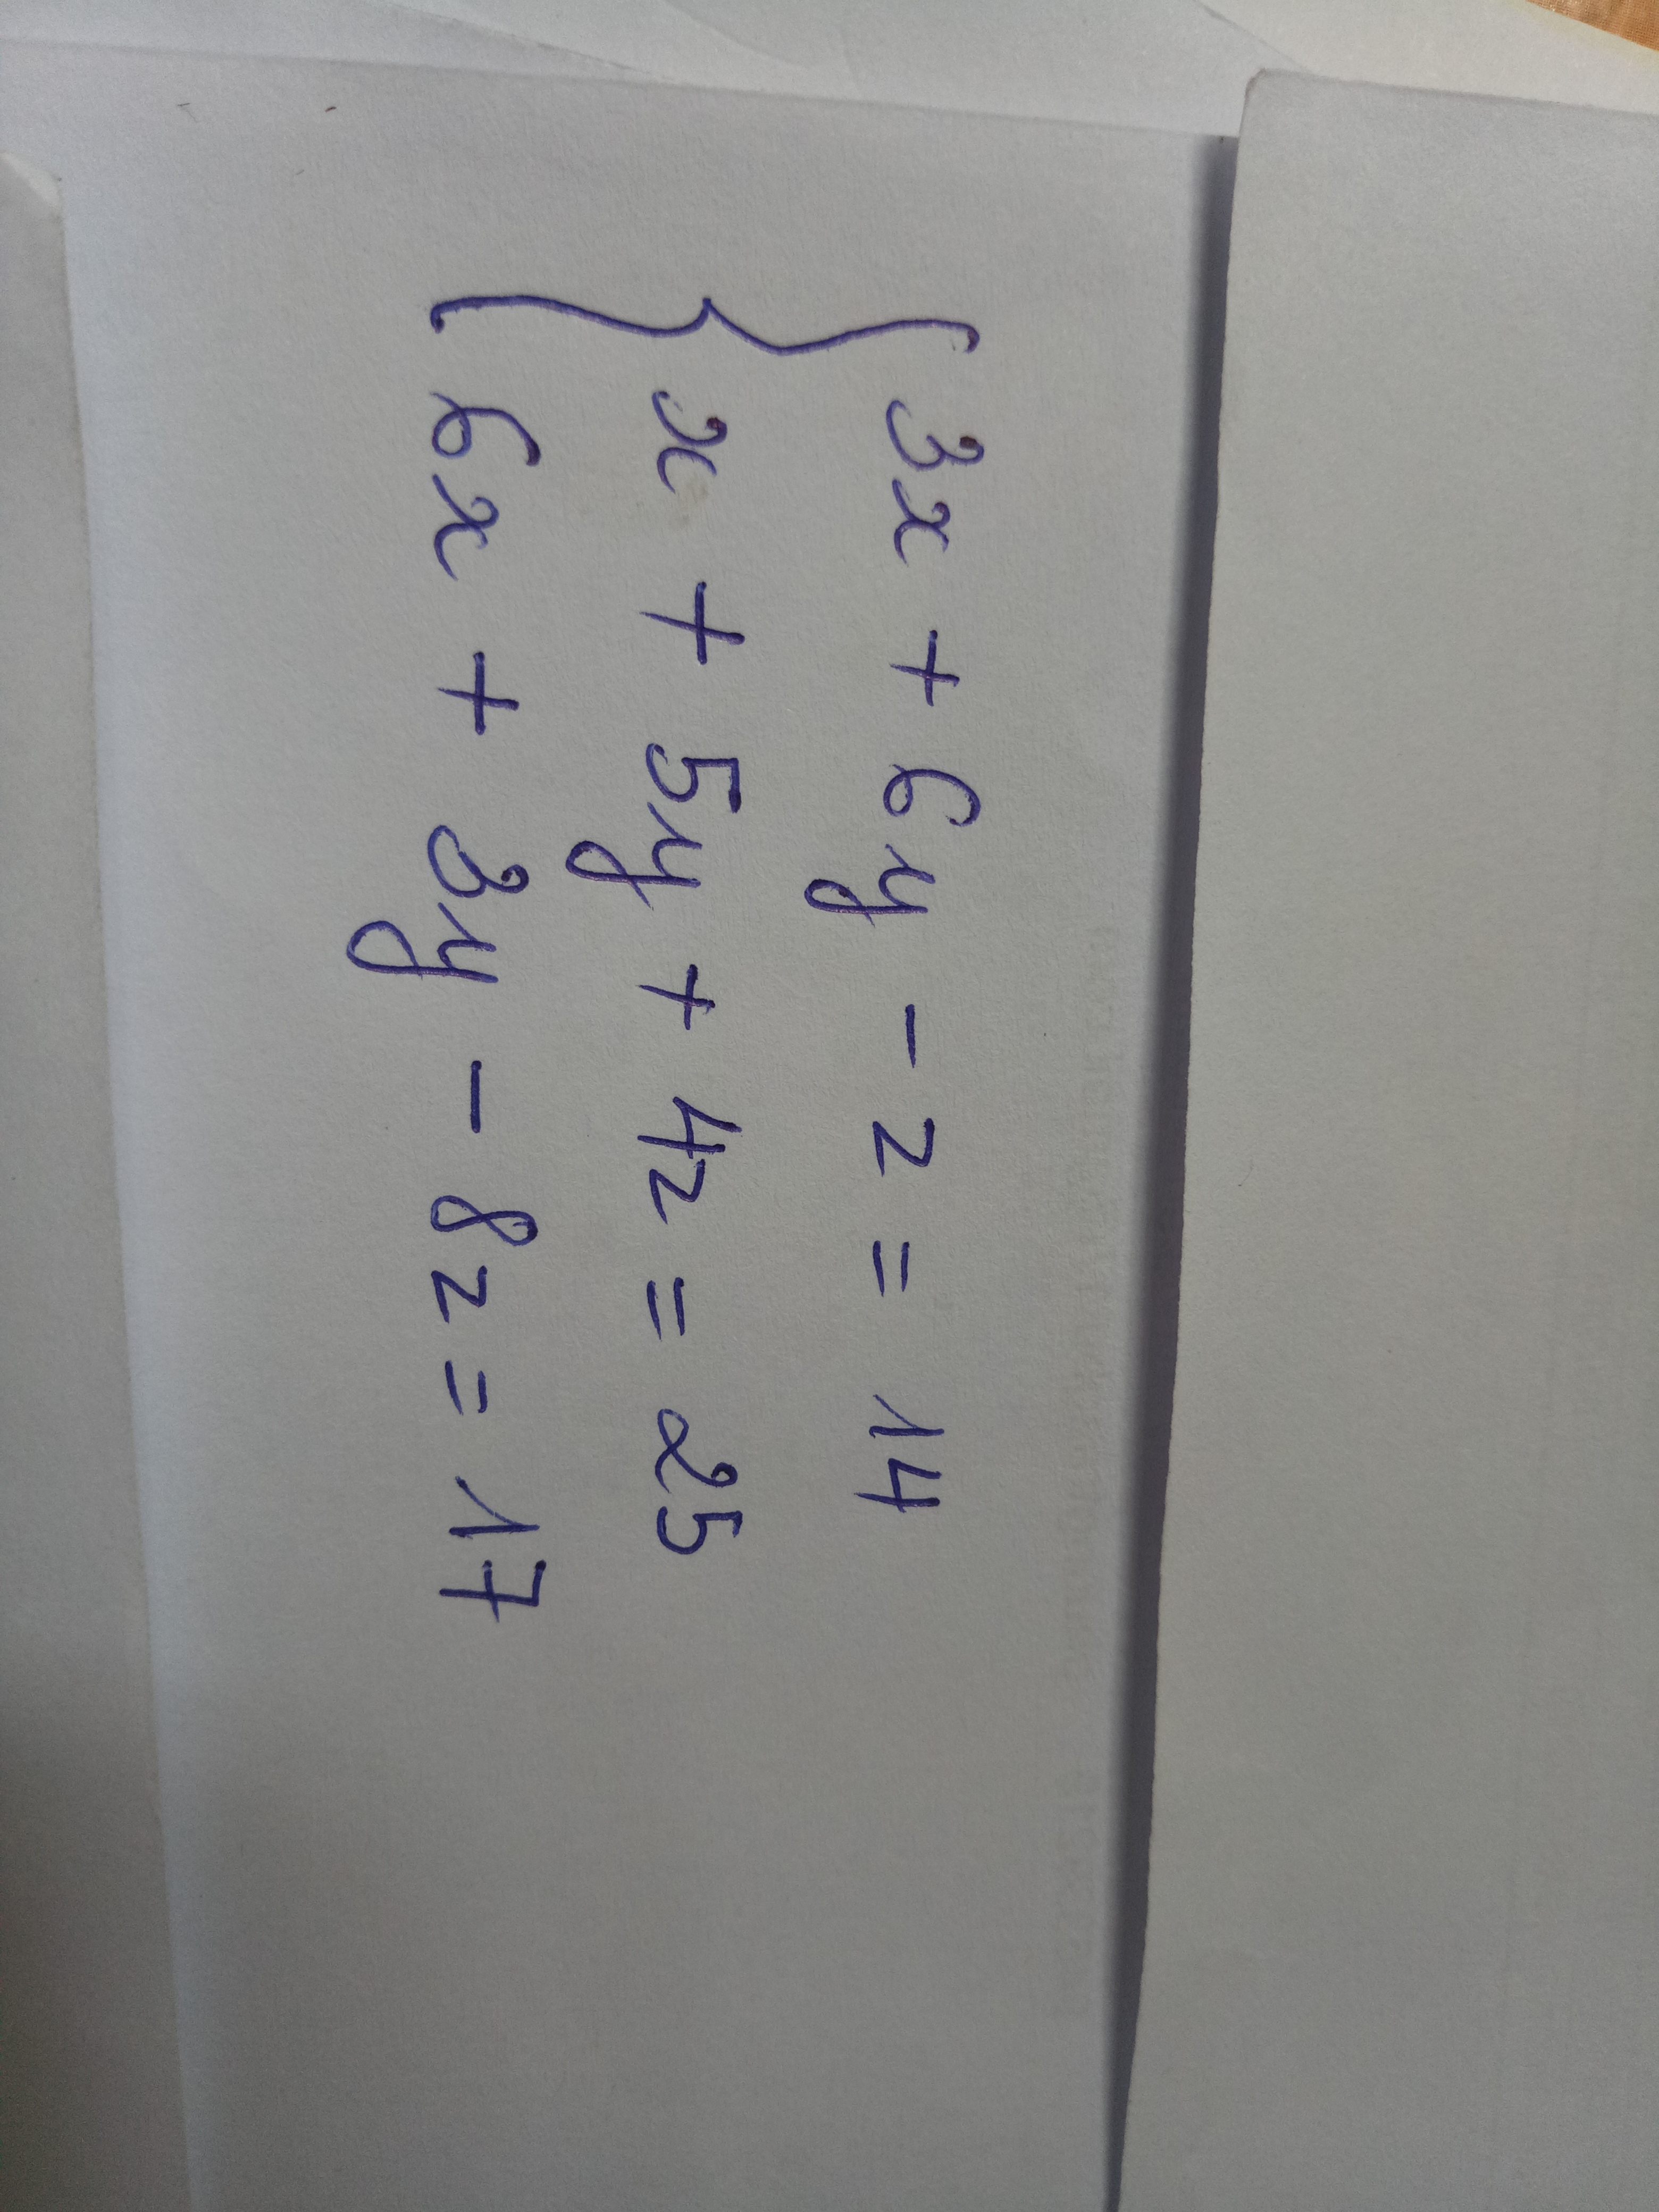 3x + 6y - z = 14
x + 5y + 4z = 25
6x + 3y - 8z = 17